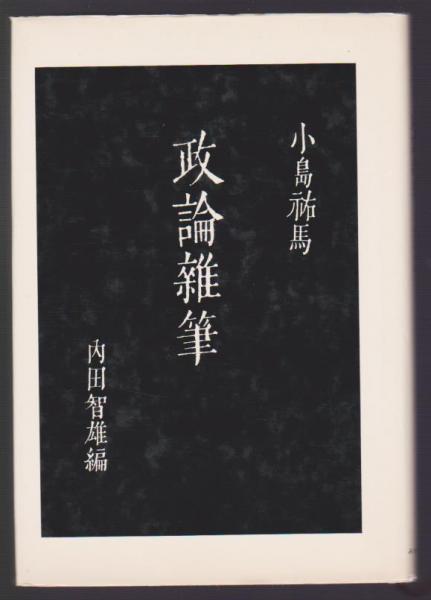 小島祐馬
政論雜筆
內田智雄編